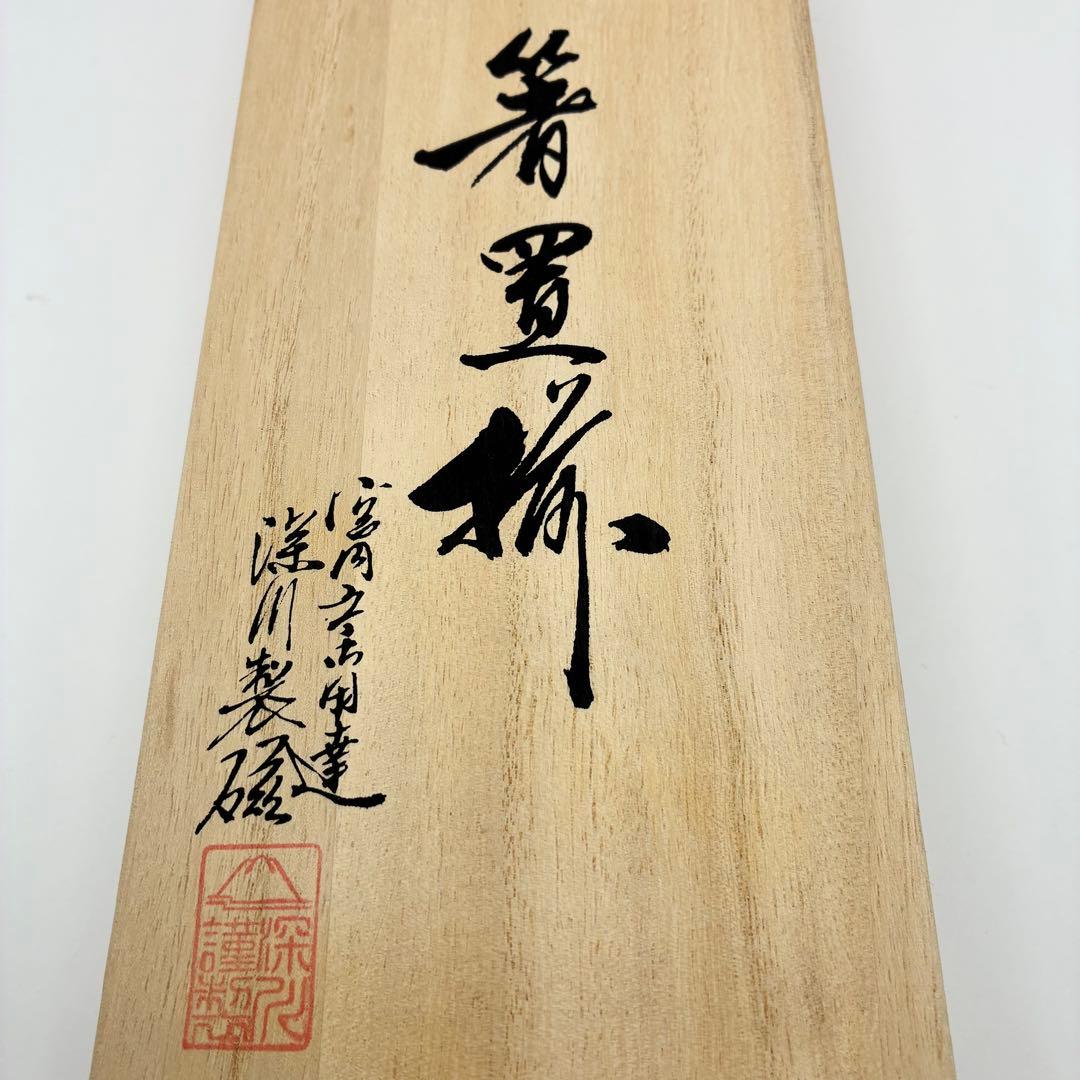 箸置揃
宮内庁御用達
深川製磁
深川
謹製